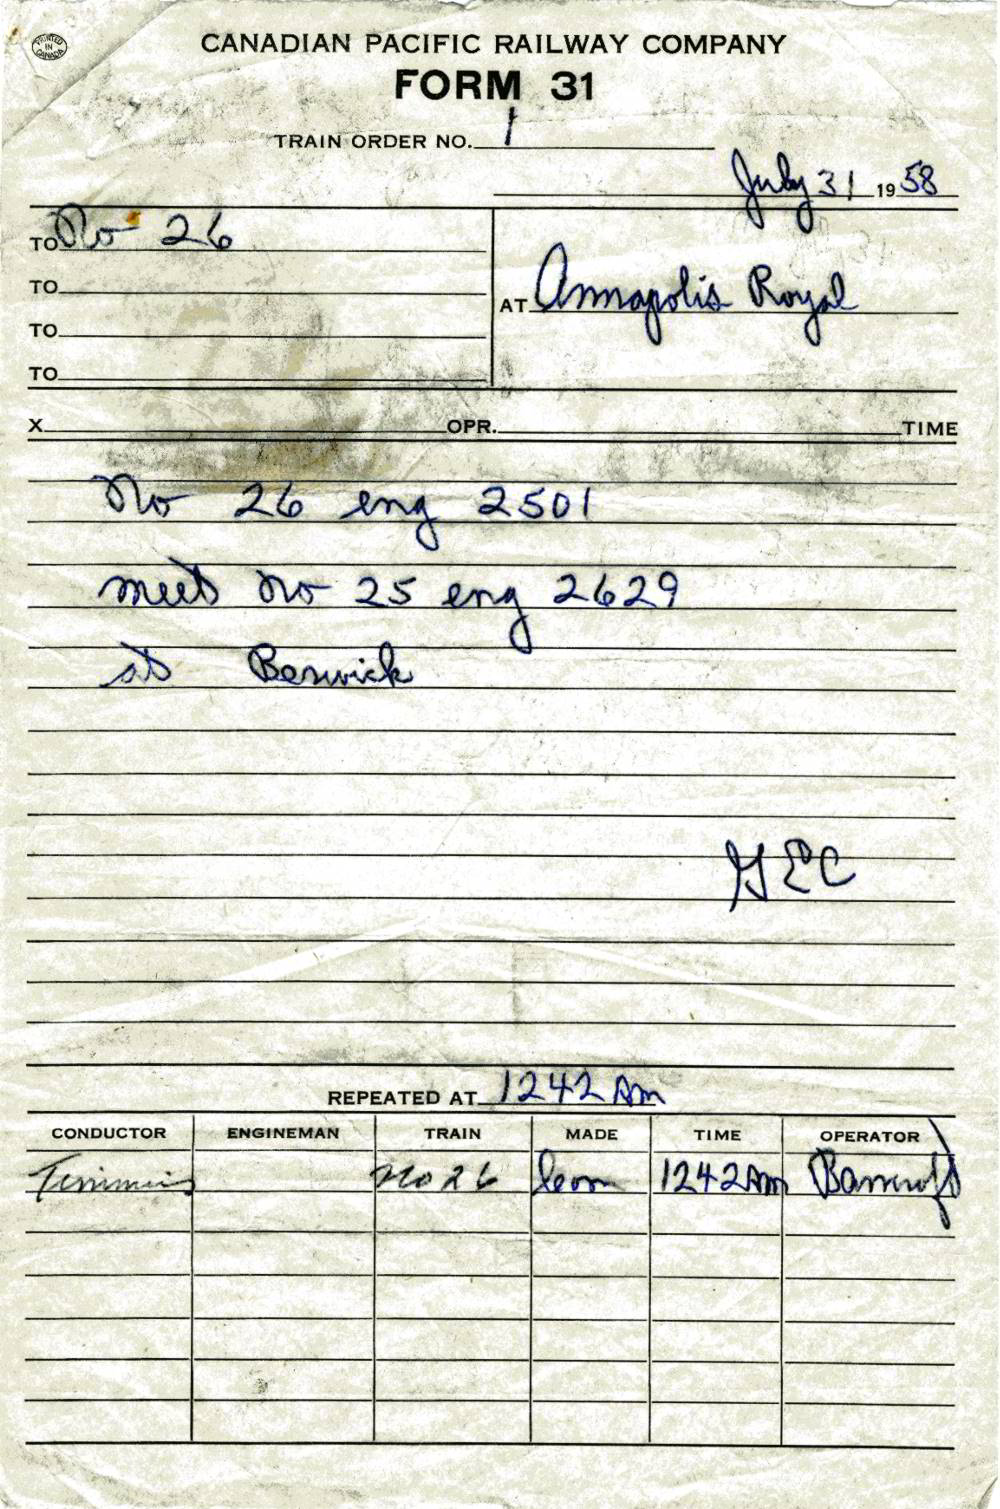 PRINTED
IN
CANADA
CANADIAN PACIFIC RAILWAY COMPANY
FORM 31
TRAIN ORDER NO. 1
July 31 1958
TO No 26
TO
AT Annapolis Royal
TO
TO
X OPR. TIME
No 26 eng 2501
meet No 25 eng 2629
at Berwick
GEC
REPEATED AT 1242 Am
CONDUCTOR ENGINEMAN TRAIN MADE TIME OPERATOR
Timmins No 26 Com 1242 Am Bancroft